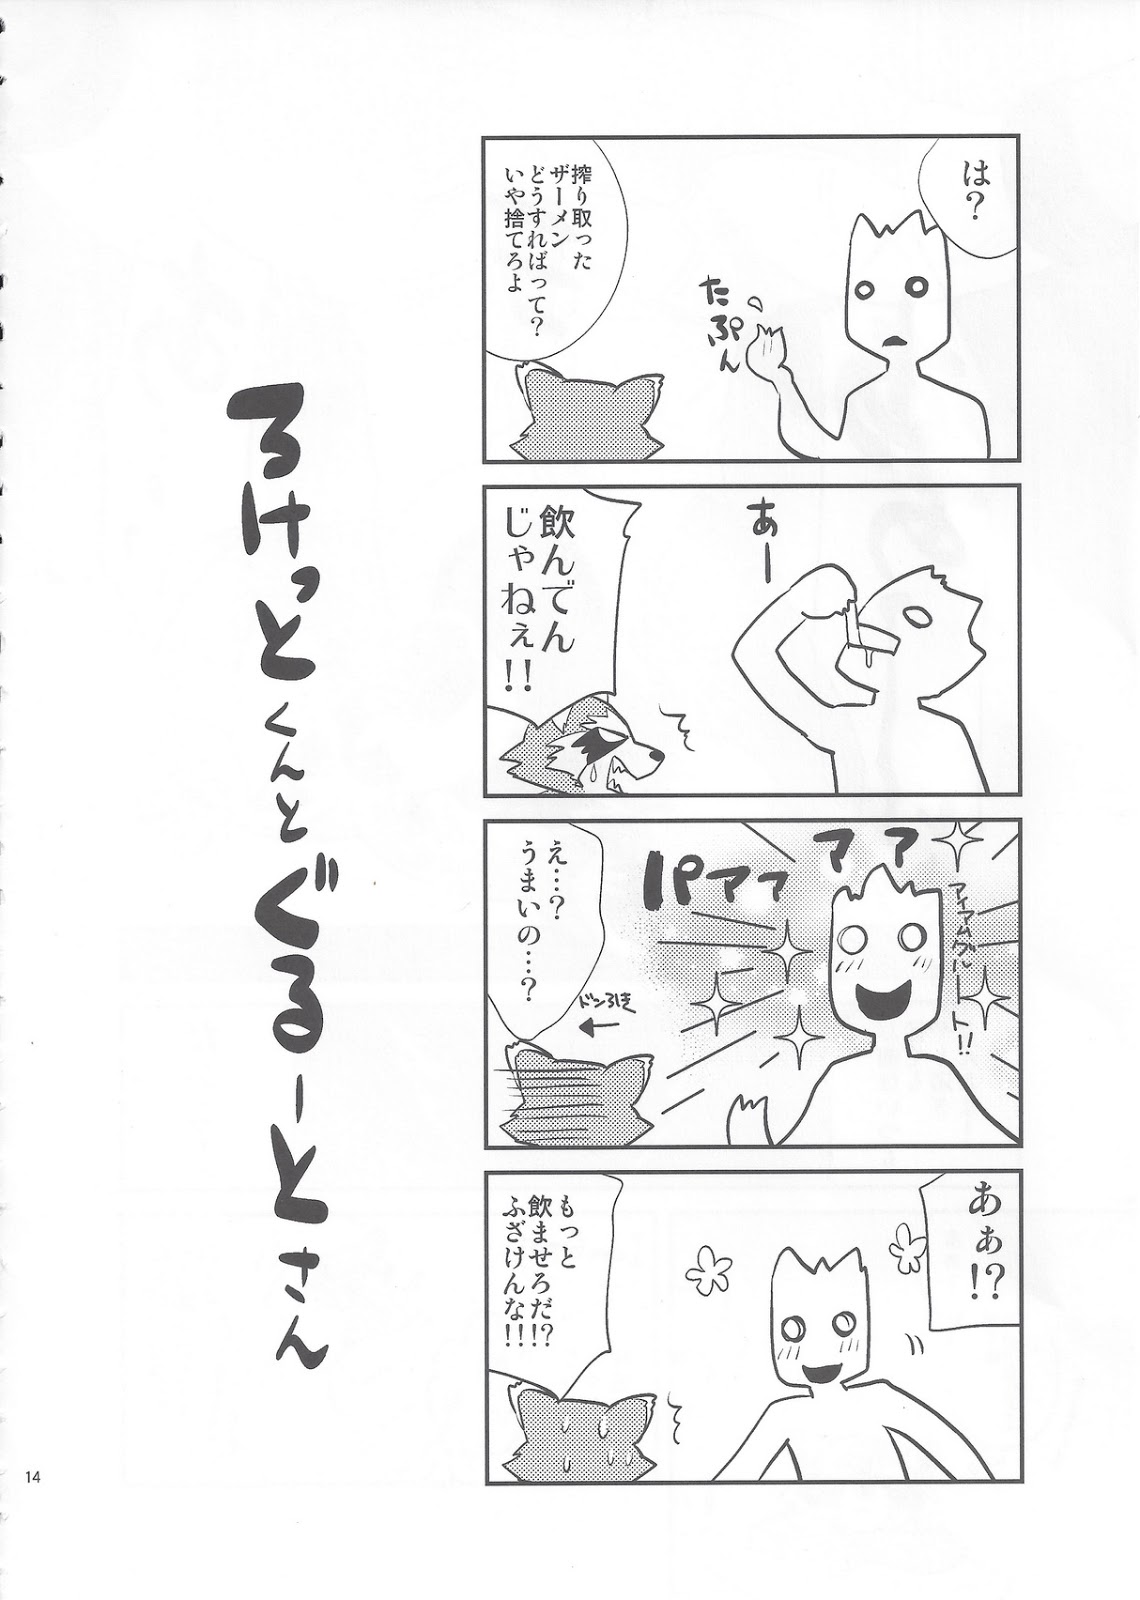 は？
搾り取った
ザーメン
どうすればって？
いや捨てろよ
たぷん
あー
飲んでん
じゃねぇ!!
パアァァァ
アイアムグルート!!
え…？
うまいの…？
ドン引き
あぁ!?
もっと
飲ませろだ!?
ふざけんな!!!
ろけっとくんとぐるーとさん
14